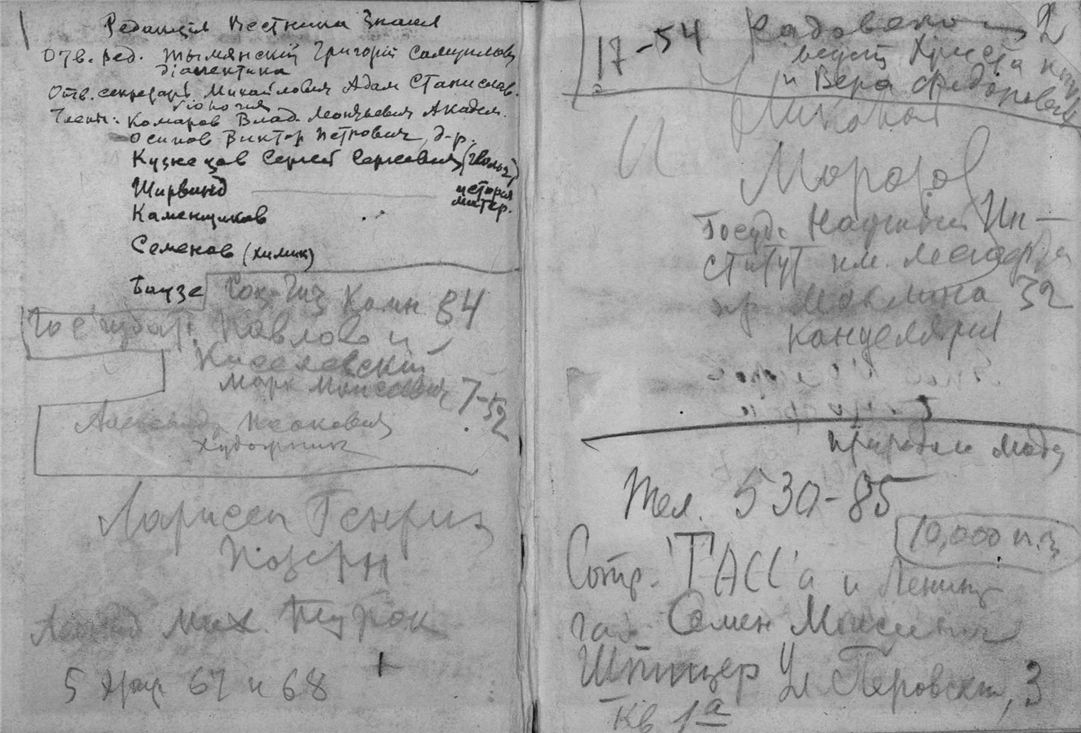 Редакция Вестника Знания
Отв. ред. Тымянский Григорий Самуилов
диалектика
Отв. секретарь Михайлович Адам Станислав.
биология
Члены: Комаров Влад. Леонтьевич Академ.
Осипов Виктор Петрович, д-р.
Кузнецов Сергей Сергеевич (геолог)
Ширвинд история матер.
Каменщиков
Семенов (химик)
Баузе
Соц-Гиз Комн 84
Павлов и
Киселевский
Марк Моисеевич 7-52
Александр
художник
Лариссы Генрих
Позерн
Леонид Мих. Турок
5 67 и 68
17-54 2
ведут Христа
и Вера Федоровна
Морозов
Госуд. Научный Ин-
ститут им. Лесгафта
пр. Маклина 32
канцелярия
природы и люди
Тел. 530-85
10,000 п.з
Сотр. ТАСС'а и Ленинг
Семен Моисеевич
Шпицер Ул. Перовской, 3
Кв 1а